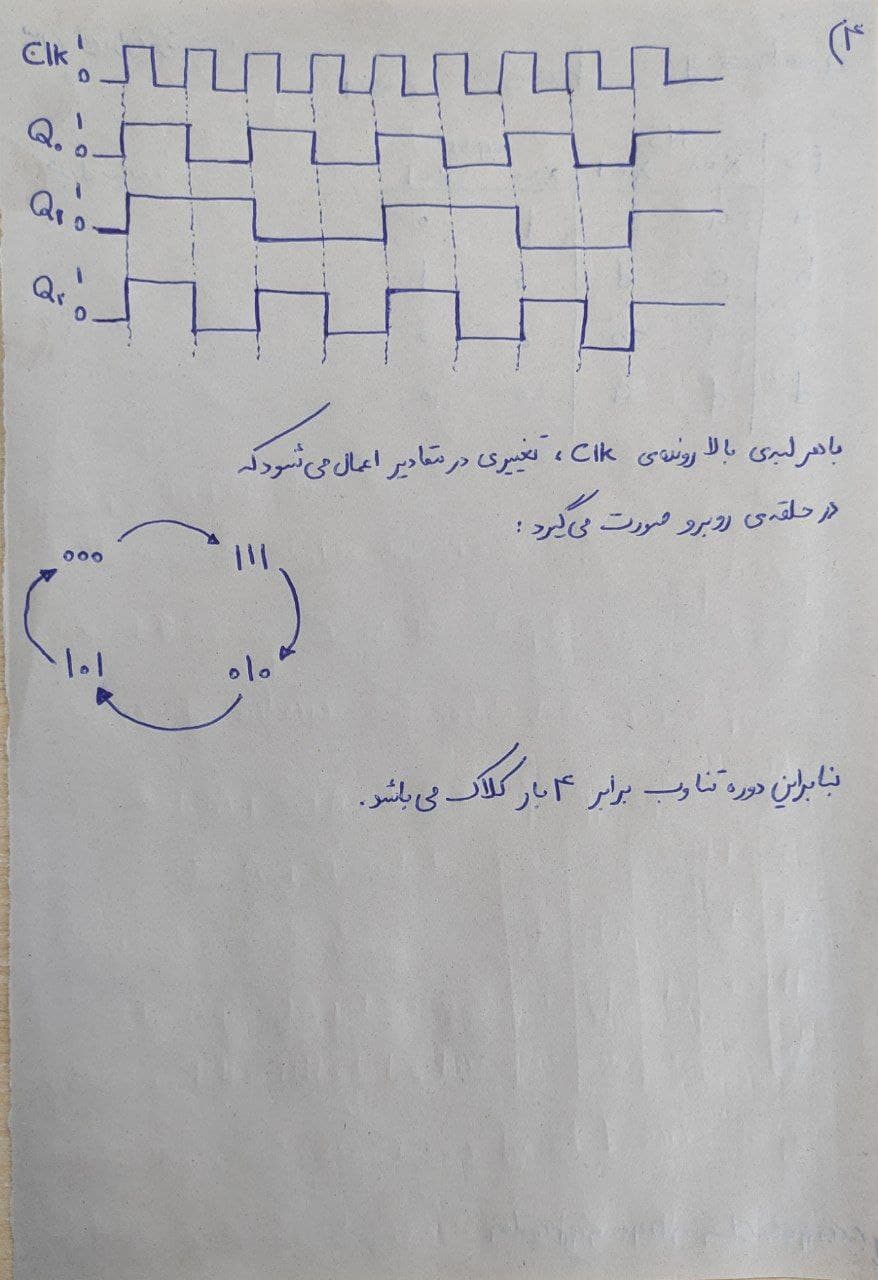 ۴)
Clk 1 0
Q۰ 1 0
Q۱ 1 0
Q۲ 1 0
با هر لبه‌ی بالا رونده‌ی Clk، تغییری در مقادیر اعمال می‌شود که
در حلقه‌ی روبرو صورت می‌گیرد:
000 111
101 010
بنابراین دوره تناوب برابر ۴ بار کلاک می‌باشد.